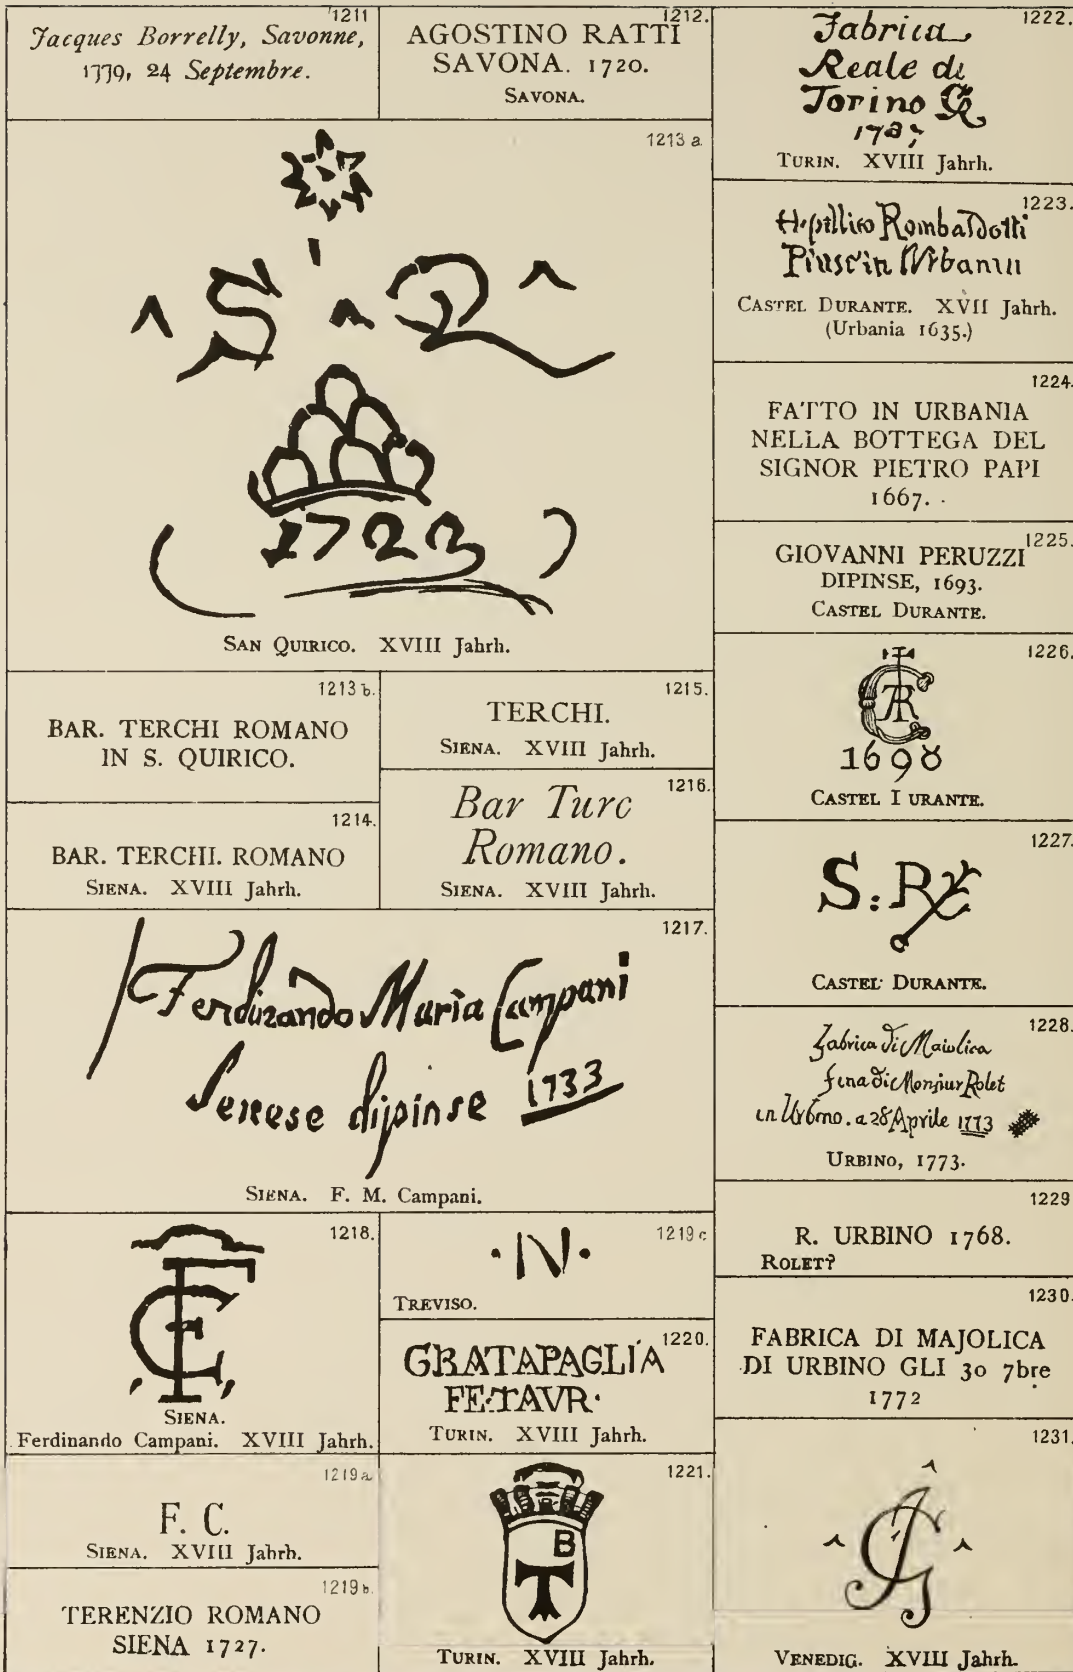 1211
Jacques Borrelly, Savonne,
1779, 24 Septembre.
1212.
AGOSTINO RATTI
SAVONA. 1720.
SAVONA.
1213 a
S Q
1723
SAN QUIRICO. XVIII Jahrh.
1213 b.
BAR. TERCHI ROMANO
IN S. QUIRICO.
1214.
BAR. TERCHI. ROMANO
SIENA. XVIII Jahrh.
1215.
TERCHI.
SIENA. XVIII Jahrh.
1216.
Bar Turc
Romano.
SIENA. XVIII Jahrh.
1217.
Ferdinando Maria Campani
Senese dipinse 1733
SIENA. F. M. Campani.
1218.
SIENA.
Ferdinando Campani. XVIII Jahrh.
1219a
F. C.
SIENA. XVIII Jahrh.
1219b.
TERENZIO ROMANO
SIENA 1727.
1219c
·N·
TREVISO.
1220.
GRATAPAGLIA
FE:TAVR·
TURIN. XVIII Jahrh.
1221.
B
T
TURIN. XVIII Jahrh.
1222.
Fabrica
Reale di
Torino
TURIN. XVIII Jahrh.
1223.
Rombaldotti
CASTEL DURANTE. XVII Jahrh.
(Urbania 1635.)
1224.
FATTO IN URBANIA
NELLA BOTTEGA DEL
SIGNOR PIETRO PAPI
1667.
1225.
GIOVANNI PERUZZI
DIPINSE, 1693.
CASTEL DURANTE.
1226.
1698
CASTEL I URANTE.
1227.
S:R
CASTEL DURANTE.
1228.
Fabrica di Maiolica
fina di Monsiur Rolet
in Urbino. a 28 Aprile 1773
URBINO, 1773.
1229
R. URBINO 1768.
ROLET?
1230.
FABRICA DI MAJOLICA
DI URBINO GLI 30 7bre
1772
1231.
VENEDIG. XVIII Jahrh.